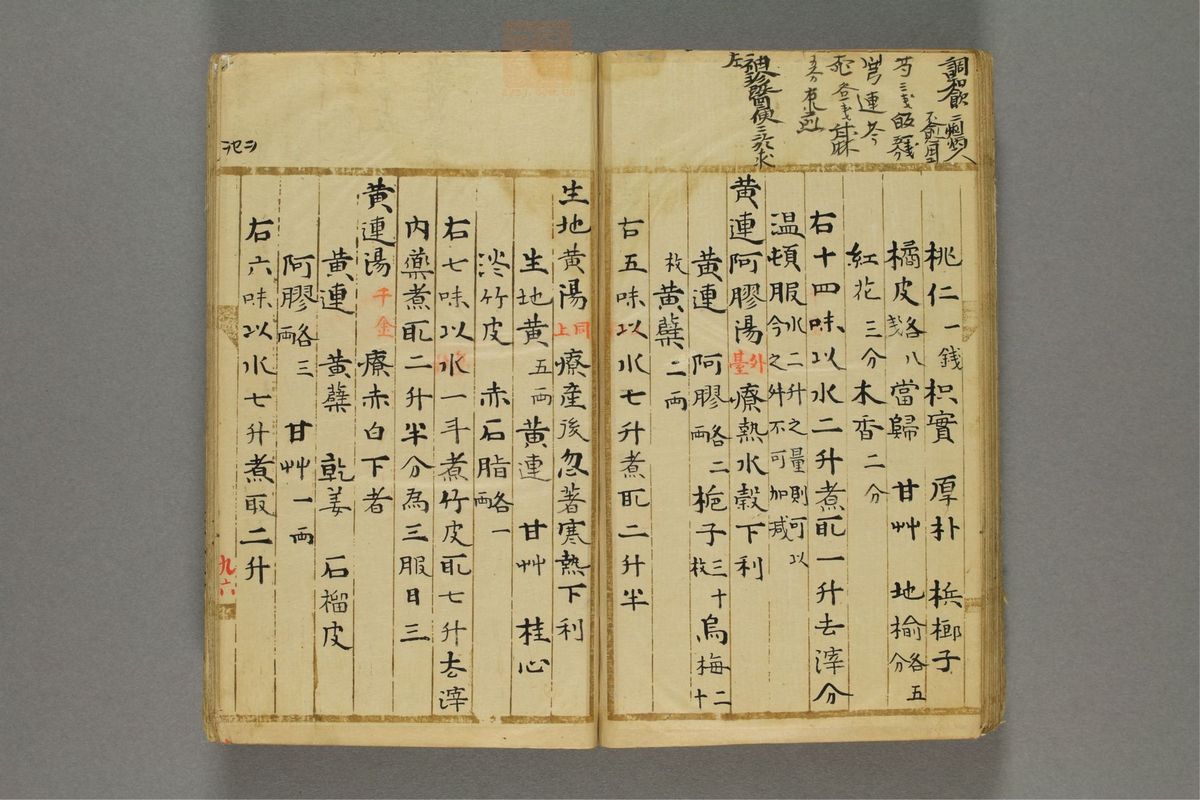 調和飲
桃仁一錢 枳實 厚朴 梹榔子
橘皮各八 當歸 甘艸 地榆各五分
紅花三分 木香二分
右十四味以水二升煮取一升去滓分
温頓服水二升之量則可以今之外不可加减
黄連阿膠湯 外臺 療熱水穀下利
黄連 阿膠各二兩 梔子三十枚 烏梅二十枚
黄蘗二兩
右五味以水七升煮取二升半
生地黄湯 同上 療産後忽著寒熱下利
生地黄五兩 黄連 甘艸 桂心
淡竹皮 赤石脂各一兩
右七味以水一斗煮竹皮取七升去滓
内藥煮取二升半分為三服日三
黄連湯 千金 療赤白下者
黄連 黄蘗 乾姜 石榴皮
阿膠各三兩 甘艸一兩
右六味以水七升煮取二升
九六